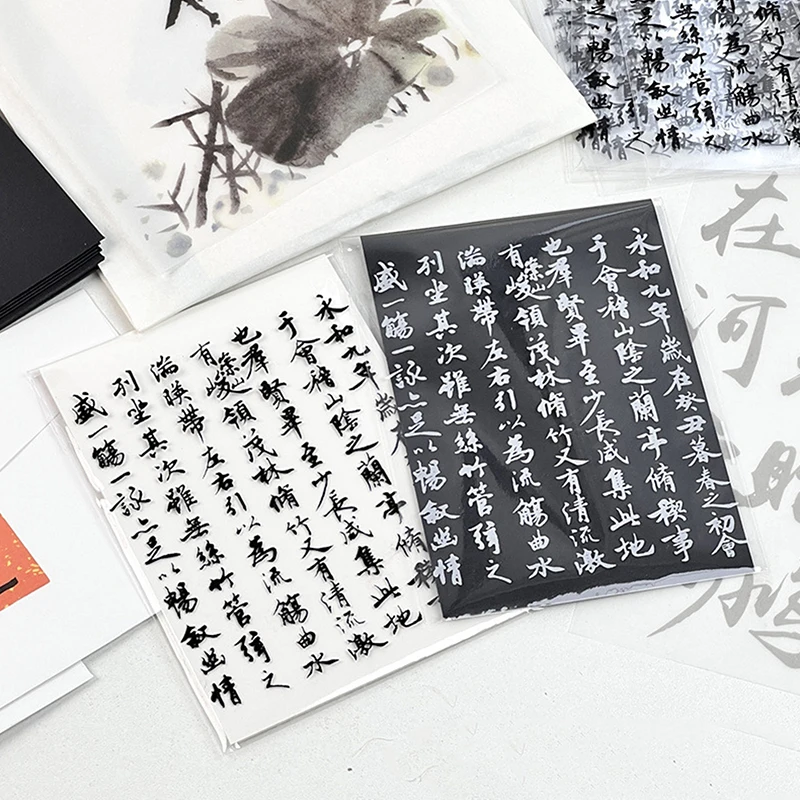 脩竹又有清流
為流觴曲水
無絲竹管弦之
以暢敘幽情
永和九年
于會稽山陰之蘭亭脩稧
也羣賢畢至少長咸集此地
有崇山峻領茂林脩竹又有清流激
湍暎帶左右引以為流觴曲水
列坐其次雖無絲竹管弦之
盛一觴一詠亦足以暢敘幽情
永和九年歲在癸丑暮春之初會
于會稽山陰之蘭亭脩稧事
也羣賢畢至少長咸集此地
有崇山峻領茂林脩竹又有清流激
湍暎帶左右引以為流觴曲水
列坐其次雖無絲竹管弦之
盛一觴一詠亦足以暢敘幽情
在河